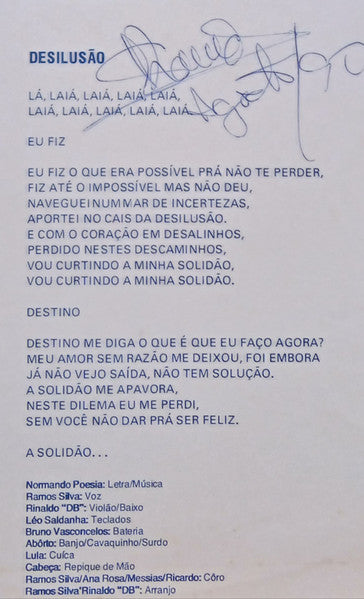 DESILUSÃO
Agosto/90
LÁ, LAIÁ, LAIÁ, LAIÁ, LAIÁ,
LAIÁ, LAIÁ, LAIÁ, LAIÁ, LAIÁ
EU FIZ
EU FIZ O QUE ERA POSSÍVEL PRÁ NÃO TE PERDER,
FIZ ATÉ O IMPOSSÍVEL MAS NÃO DEU,
NAVEGUEI NUM MAR DE INCERTEZAS,
APORTEI NO CAIS DA DESILUSÃO.
E COM O CORAÇÃO EM DESALINHOS,
PERDIDO NESTES DESCAMINHOS,
VOU CURTINDO A MINHA SOLIDÃO,
VOU CURTINDO A MINHA SOLIDÃO.
DESTINO
DESTINO ME DIGA O QUE É QUE EU FAÇO AGORA?
MEU AMOR SEM RAZÃO ME DEIXOU, FOI EMBORA
JÁ NÃO VEJO SAÍDA, NÃO TEM SOLUÇÃO.
A SOLIDÃO ME APAVORA,
NESTE DILEMA EU ME PERDI,
SEM VOCÊ NÃO DAR PRÁ SER FELIZ.
A SOLIDÃO...
Normando Poesia: Letra/Música
Ramos Silva: Voz
Rinaldo "DB": Violão/Baixo
Léo Saldanha: Teclados
Bruno Vasconcelos: Bateria
Abôrto: Banjo/Cavaquinho/Surdo
Lula: Cuíca
Cabeça: Repique de Mão
Ramos Silva/Ana Rosa/Messias/Ricardo: Côro
Ramos Silva'Rinaldo "DB": Arranjo